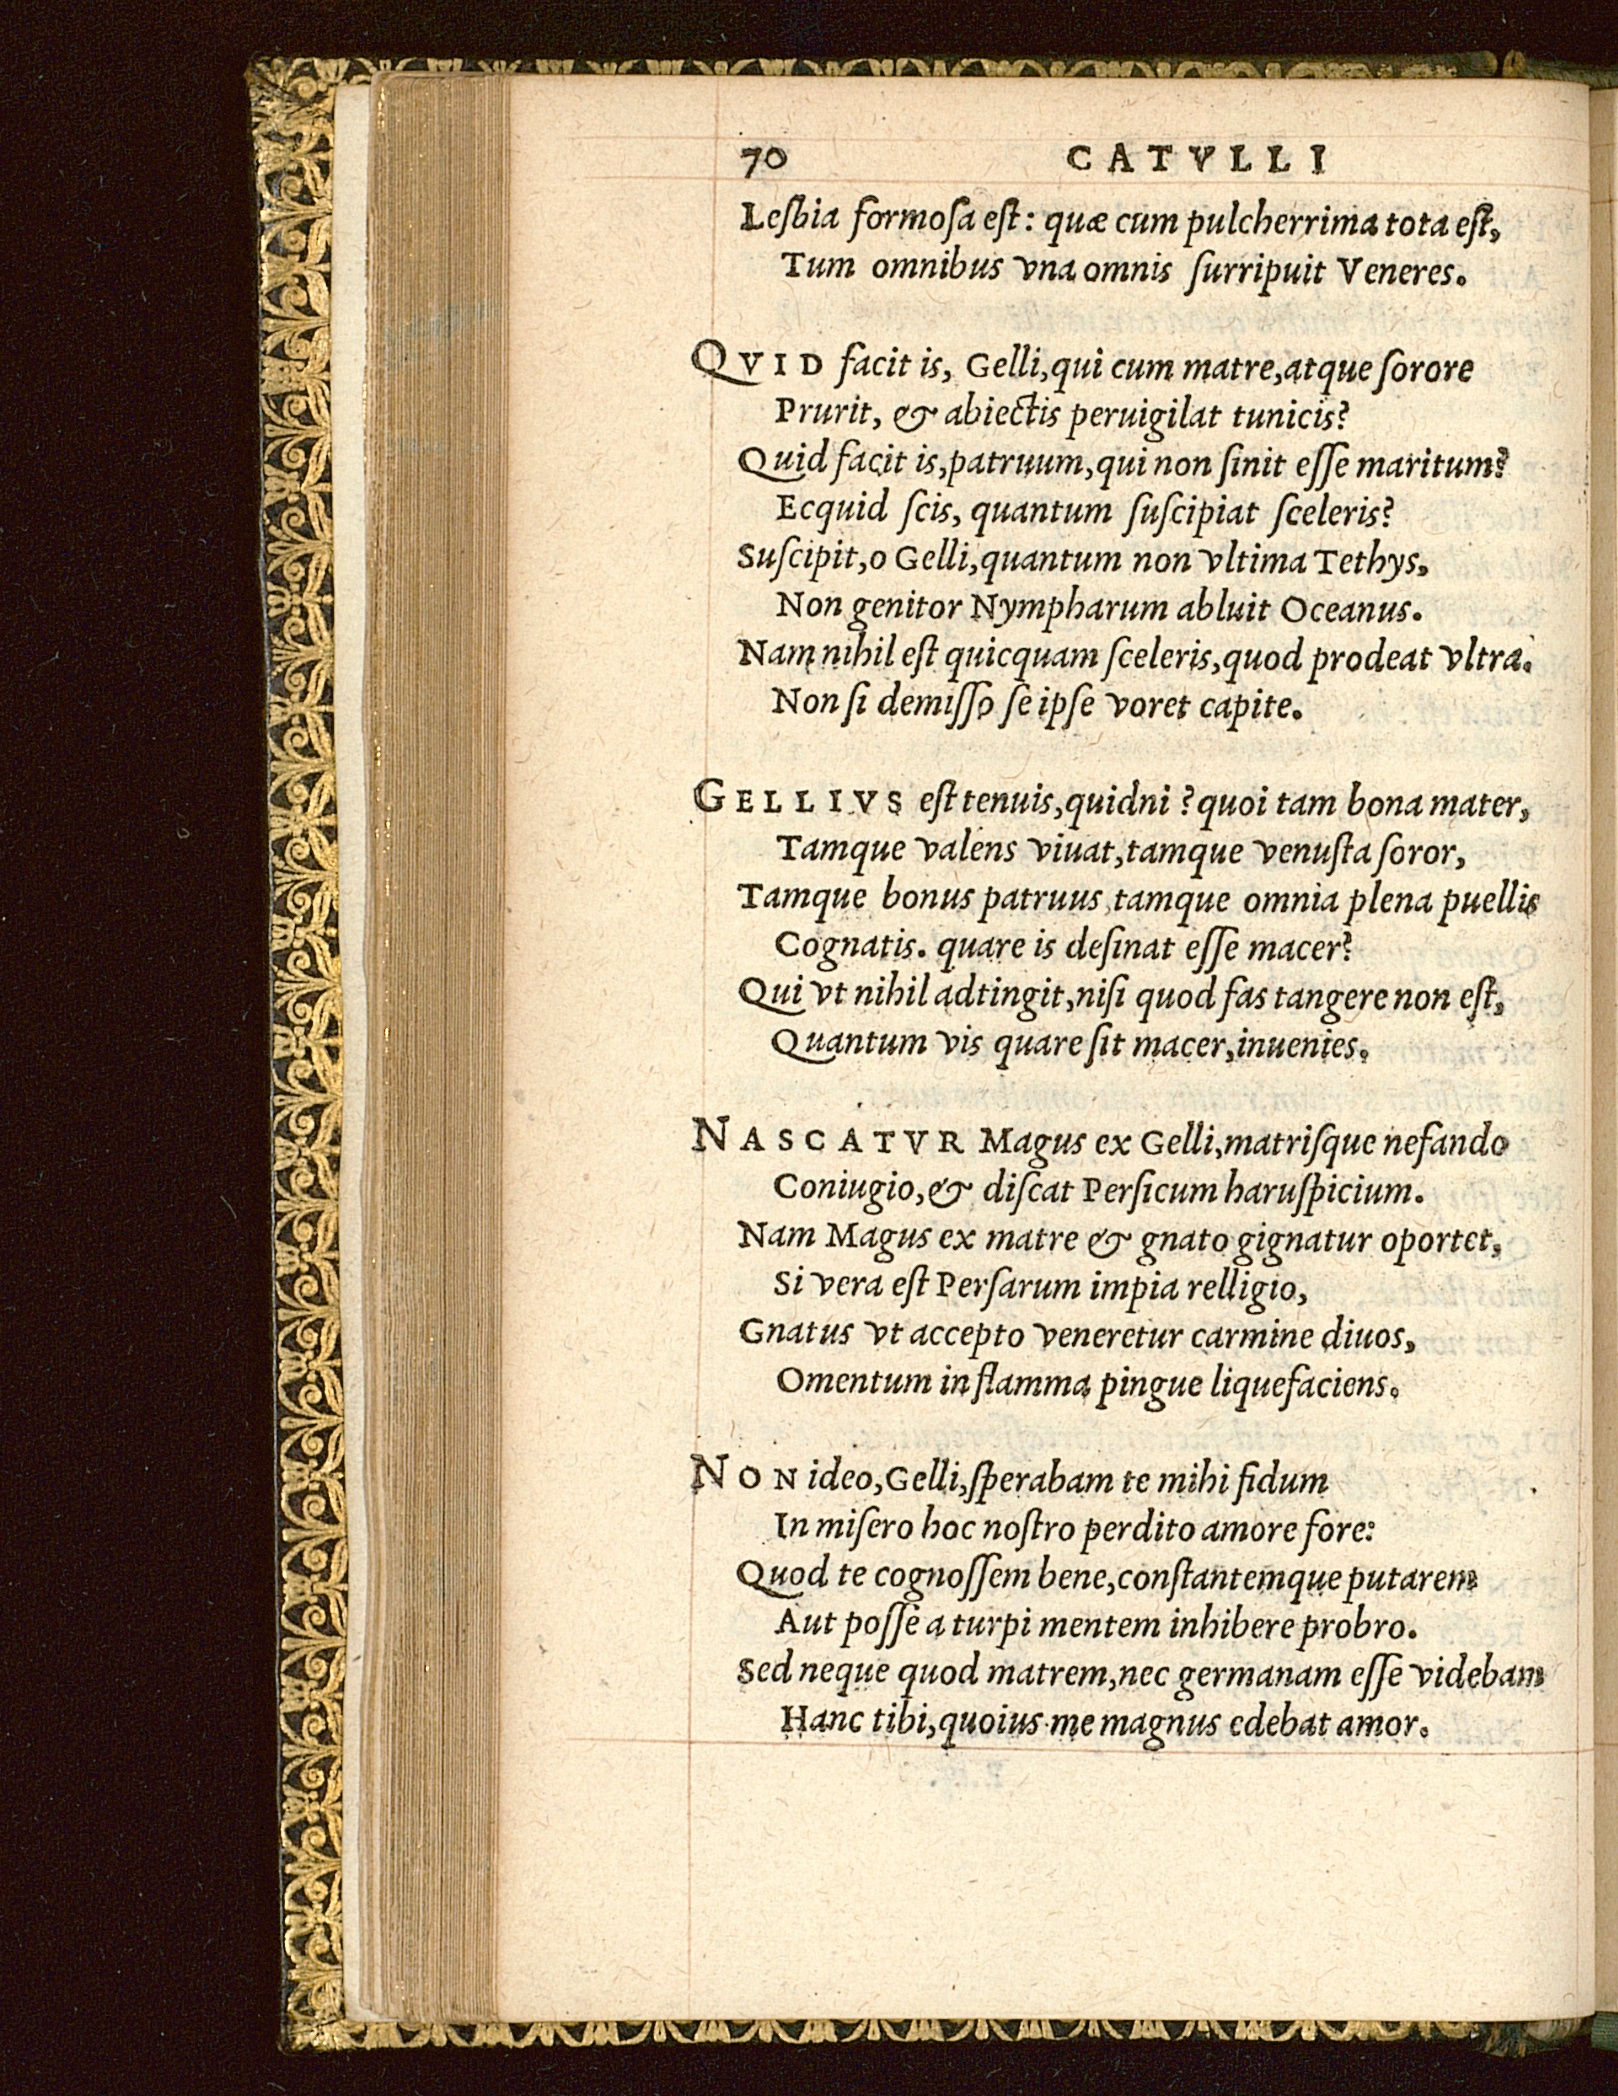 70 CATVLLI
Lesbia formosa est: quæ cum pulcherrima tota est,
Tum omnibus vna omnis surripuit Veneres.
QVID facit is, Gelli, qui cum matre, atque sorore
Prurit, & abiectis peruigilat tunicis?
Quid facit is, patruum, qui non sinit esse maritum?
Ecquid scis, quantum suscipiat sceleris?
Suscipit, o Gelli, quantum non vltima Tethys,
Non genitor Nympharum abluit Oceanus.
Nam nihil est quicquam sceleris, quod prodeat vltra.
Non si demisso se ipse voret capite.
GELLIVS est tenuis, quidni? quoi tam bona mater,
Tamque valens viuat, tamque venusta soror,
Tamque bonus patruus, tamque omnia plena puellis
Cognatis. quare is desinat esse macer?
Qui vt nihil adtingit, nisi quod fas tangere non est,
Quantum vis quare sit macer, inuenies.
NASCATVR Magus ex Gelli, matrisque nefando
Coniugio, & discat Persicum haruspicium.
Nam Magus ex matre & gnato gignatur oportet,
Si vera est Persarum impia relligio,
Gnatus vt accepto veneretur carmine diuos,
Omentum in flamma pingue liquefaciens.
NON ideo, Gelli, sperabam te mihi fidum
In misero hoc nostro perdito amore fore:
Quod te cognossem bene, constantemque putarem
Aut posse a turpi mentem inhibere probro.
Sed neque quod matrem, nec germanam esse videbam
Hanc tibi, quoius me magnus edebat amor.